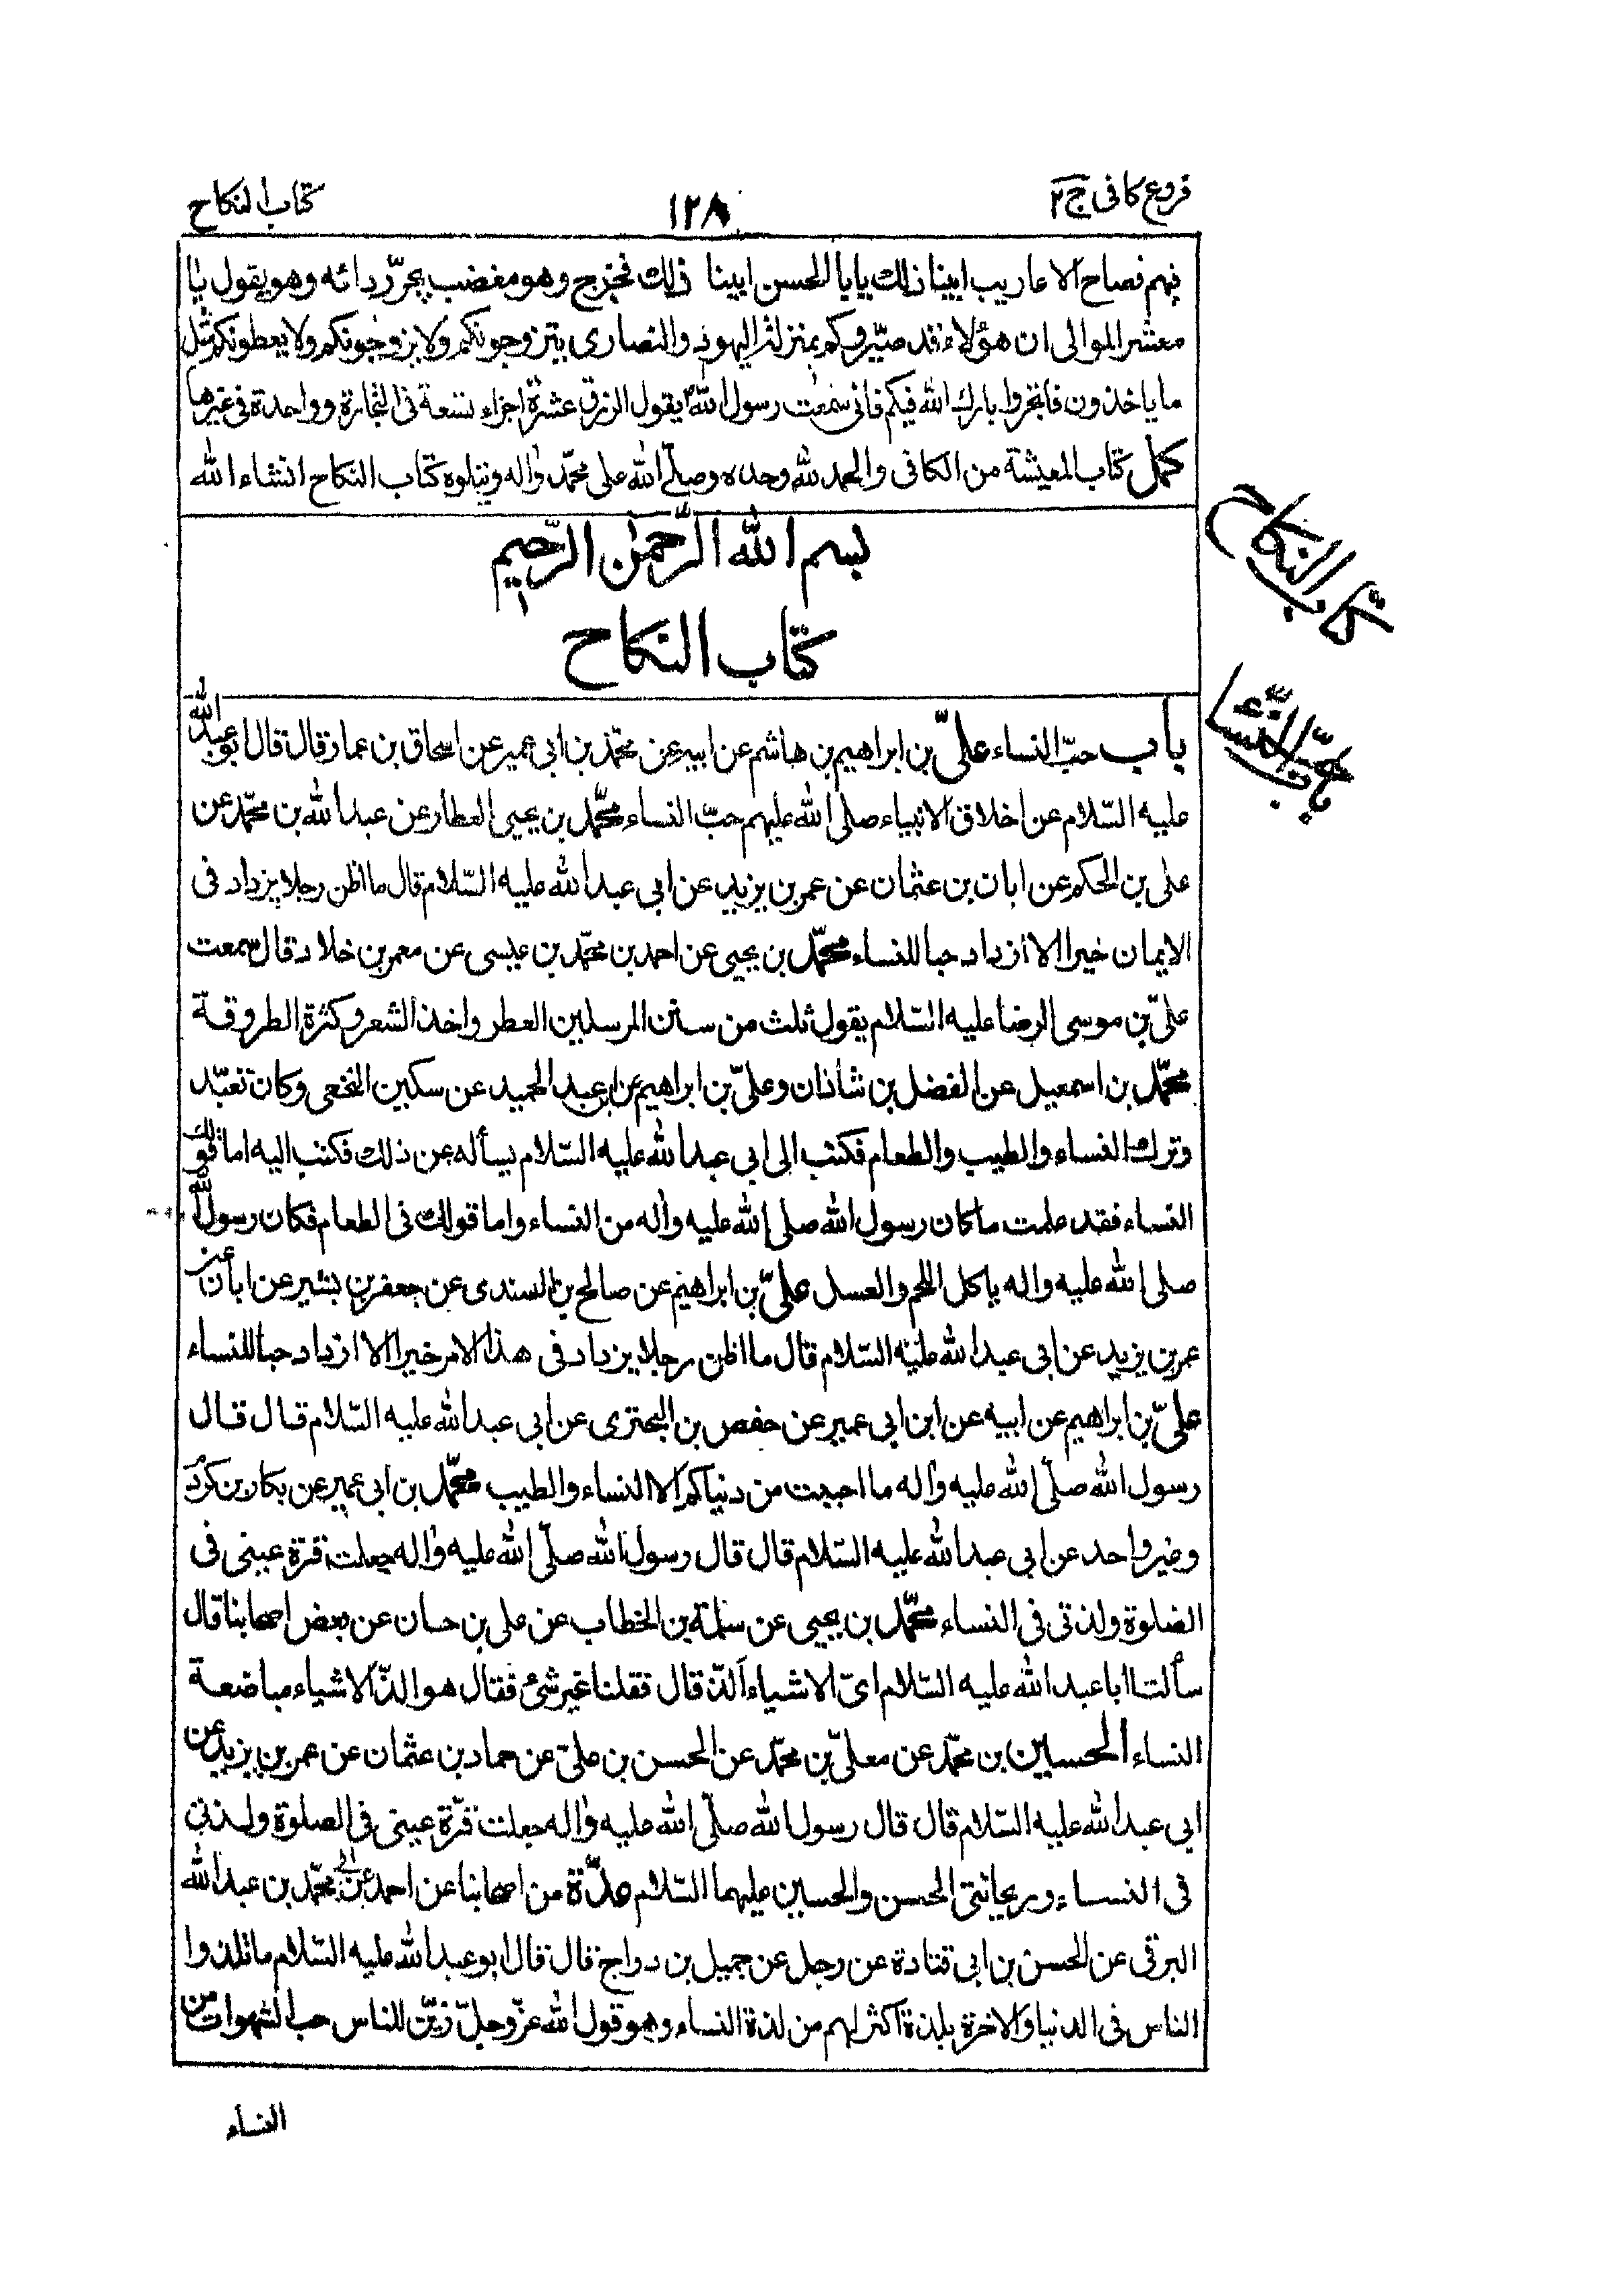 فروع كافى ج٢
١٢٨
كتاب النكاح
فيهم فصاح الاعاريب ابينا ذلك يابا الحسن ابينا ذلك فخرج وهو مغضب يجرّ ردائه وهو يقول يا
معشر الموالى ان هؤلاء قد صيّروكم بمنزلة اليهود والنصارى يتزوجونكم ولا يزوجونكم ولا يعطونكم مثل
ما ياخذون فاتجروا بارك الله فيكم فانى سمعت رسول الله يقول الرزق عشرة اجزاء تسعة فى التجارة وواحدة فى غيرها
كمل كتاب المعيشة من الكافى والحمد لله وحده وصلّى الله على محمّد واله ويتلوه كتاب النكاح انشاء الله
بسم الله الرّحمن الرّحيم
كتاب النكاح
كتاب النكاح
باب حبّ النساء
باب حبّ النساء علىّ بن ابراهيم بن هاشم عن ابيه عن محمّد بن ابى عمير عن اسحاق بن عمار قال قال ابو عبد الله
عليه السّلام عن اخلاق الانبياء صلى الله عليهم حبّ النساء محمّد بن يحيى العطار عن عبد الله بن محمّد عن
على بن الحكم عن ابان بن عثمان عن عمر بن يزيد عن ابى عبد الله عليه السّلام قال ما اظن رجلا يزداد فى
الايمان خيرا الا ازداد حبا للنساء محمّد بن يحيى عن احمد بن محمّد بن عيسى عن معمر بن خلاد قال سمعت
علىّ بن موسى الرضا عليه السّلام يقول ثلث من سنن المرسلين العطر واخذ الشعر وكثرة الطروقة
محمّد بن اسمعيل عن الفضل بن شاذان وعلىّ بن ابراهيم عن ابن عبد الحميد عن سكين النخعى وكان تعبّد
وترك النساء والطيب والطعام فكتب الى ابى عبد الله عليه السّلام يسأله عن ذلك فكتب اليه اما قولك
النساء فقد علمت ما كان رسول الله صلى الله عليه واله من النساء واما قولك فى الطعام فكان رسول الله
صلى الله عليه واله ياكل اللحم والعسل علىّ بن ابراهيم عن صالح بن السندى عن جعفر بن بشير عن ابان عن
عمر بن يزيد عن ابى عبد الله عليه السّلام قال ما اظن رجلا يزداد فى هذا الامر خيرا الا ازداد حبا للنساء
علىّ بن ابراهيم عن ابيه عن ابن ابى عمير عن حفص بن البخترى عن ابى عبد الله عليه السّلام قال قال
رسول الله صلّى الله عليه واله ما احببت من دنياكم الا النساء والطيب محمّد بن ابى عمير عن بكار بن كرد
وغير واحد عن ابى عبد الله عليه السّلام قال قال رسول الله صلّى الله عليه واله جعلت قرة عينى فى
الصلوة ولذتى فى النساء محمّد بن يحيى عن سلمة بن الخطاب عن على بن حسان عن بعض اصحابنا قال
سألنا ابا عبد الله عليه السّلام اىّ الاشياء الذّ قال فقلنا غير شئ فقال هو الذّ الاشياء مباضعة
النساء الحسين بن محمّد عن معلىّ بن محمّد عن الحسن بن علىّ عن حماد بن عثمان عن عمر بن يزيد عن
ابى عبد الله عليه السّلام قال قال رسول الله صلّى الله عليه واله جعلت قرّة عينى فى الصلوة ولذتى
فى النساء وريحانتى الحسن والحسين عليهما السّلام عدّة من اصحابنا عن احمد بن ابى محمّد بن عبد الله
البرقى عن الحسن بن ابى قتادة عن رجل عن جميل بن دراج قال قال ابو عبد الله عليه السّلام ما تلذذوا
الناس فى الدنيا والاخرة بلذة اكثر لهم من لذة النساء وهو قول الله عزّ وجلّ زيّن للناس حب الشهوات من
النساء